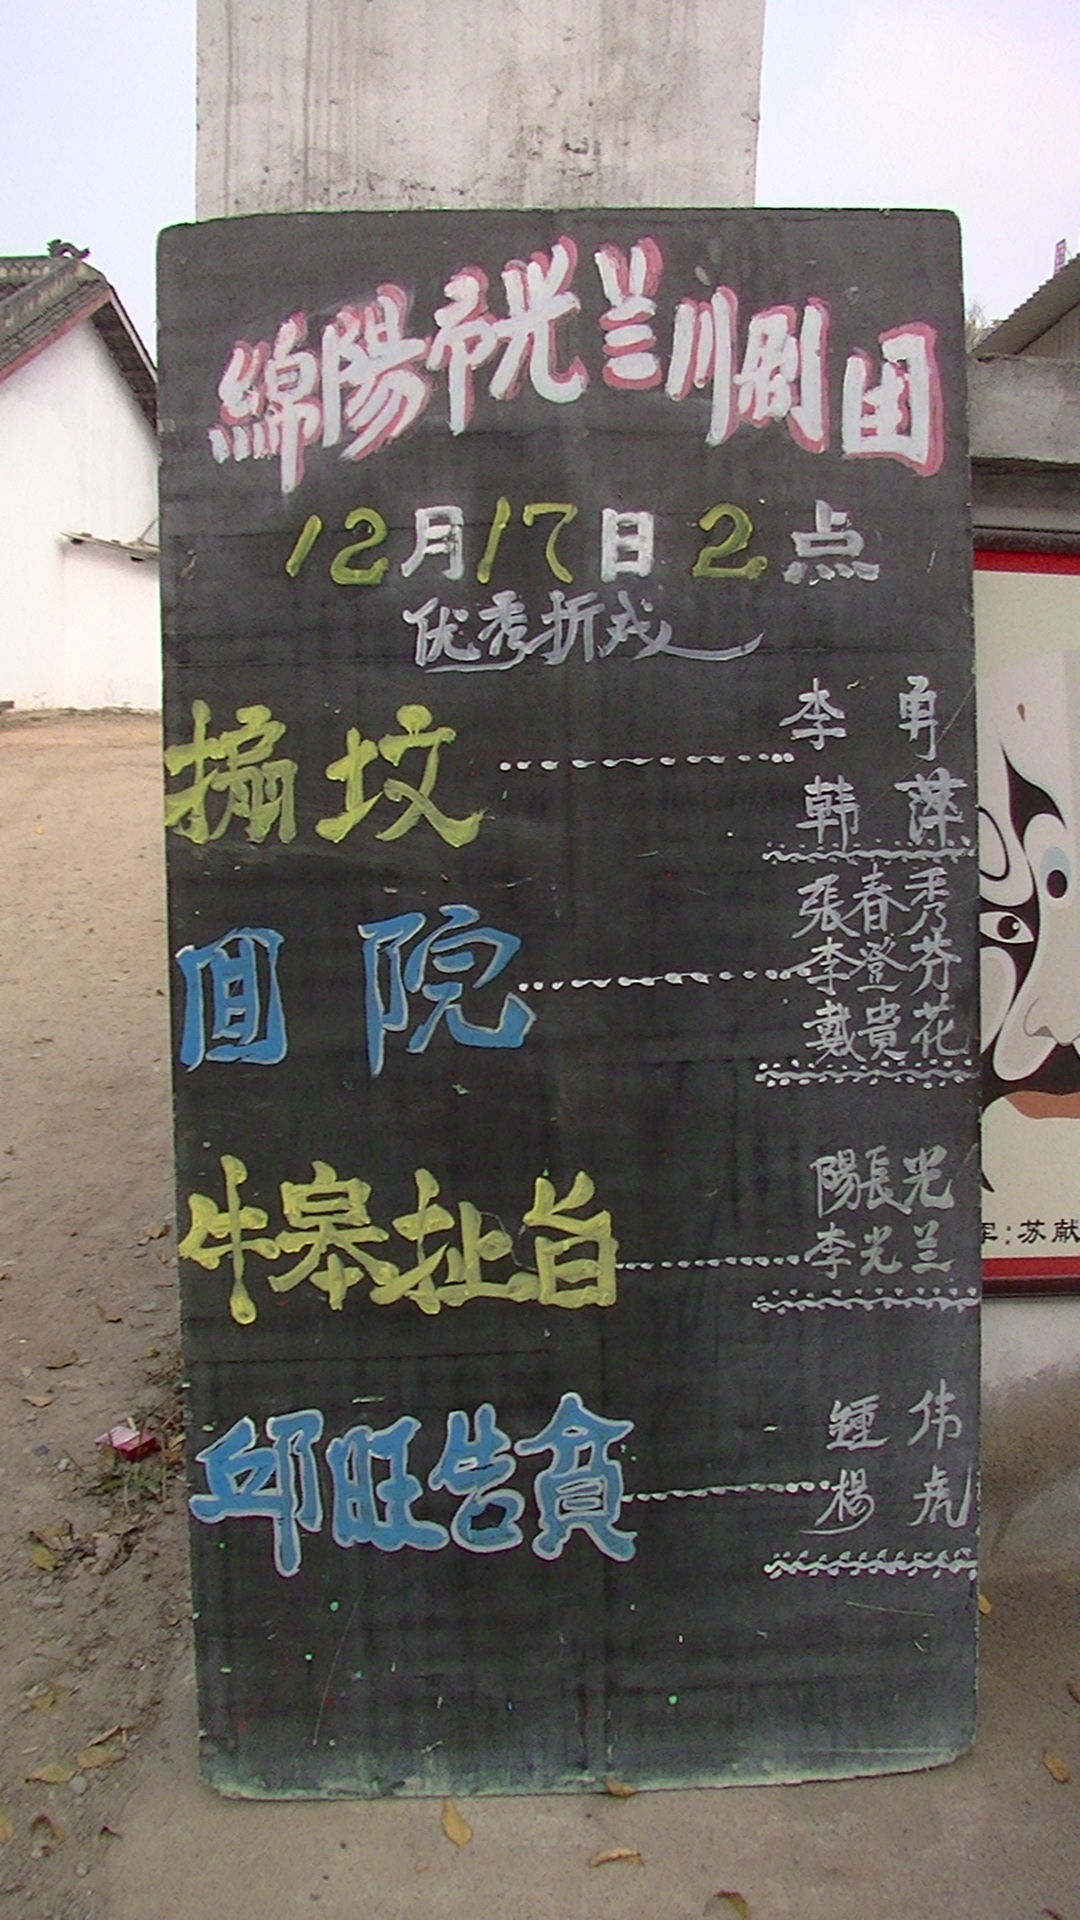 綿陽市光兰川剧团
12月17日2点
优秀折戏
搧坟
李勇
韩萍
回院
張春秀
李登芬
戴貴花
牛皋扯旨
陽長光
李光兰
邱旺告貧
鍾伟
楊虎
军:苏献